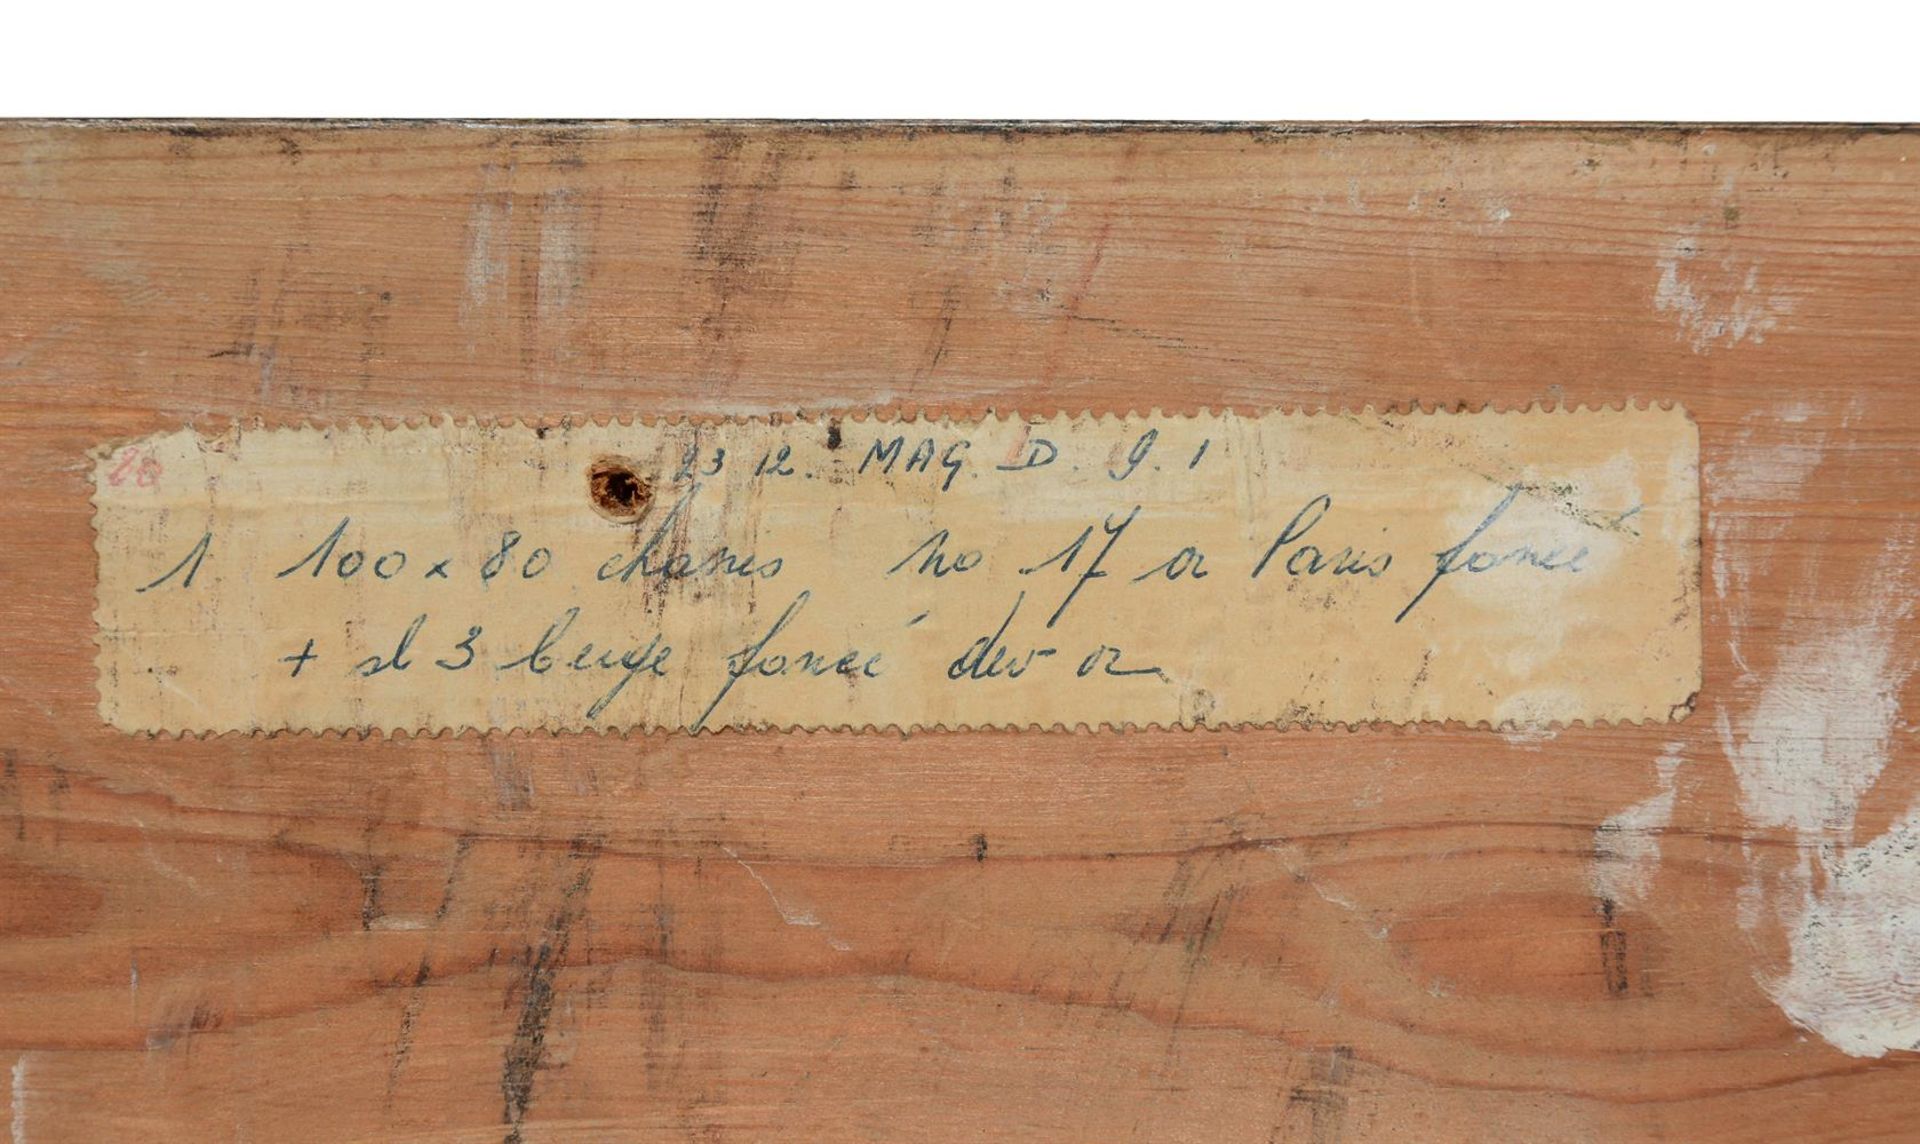 20
23 12. MAG. D. 9. 1
1 100 x 80 chassis no 17 or Paris foncé
+ sl 3 beige foncé dev or